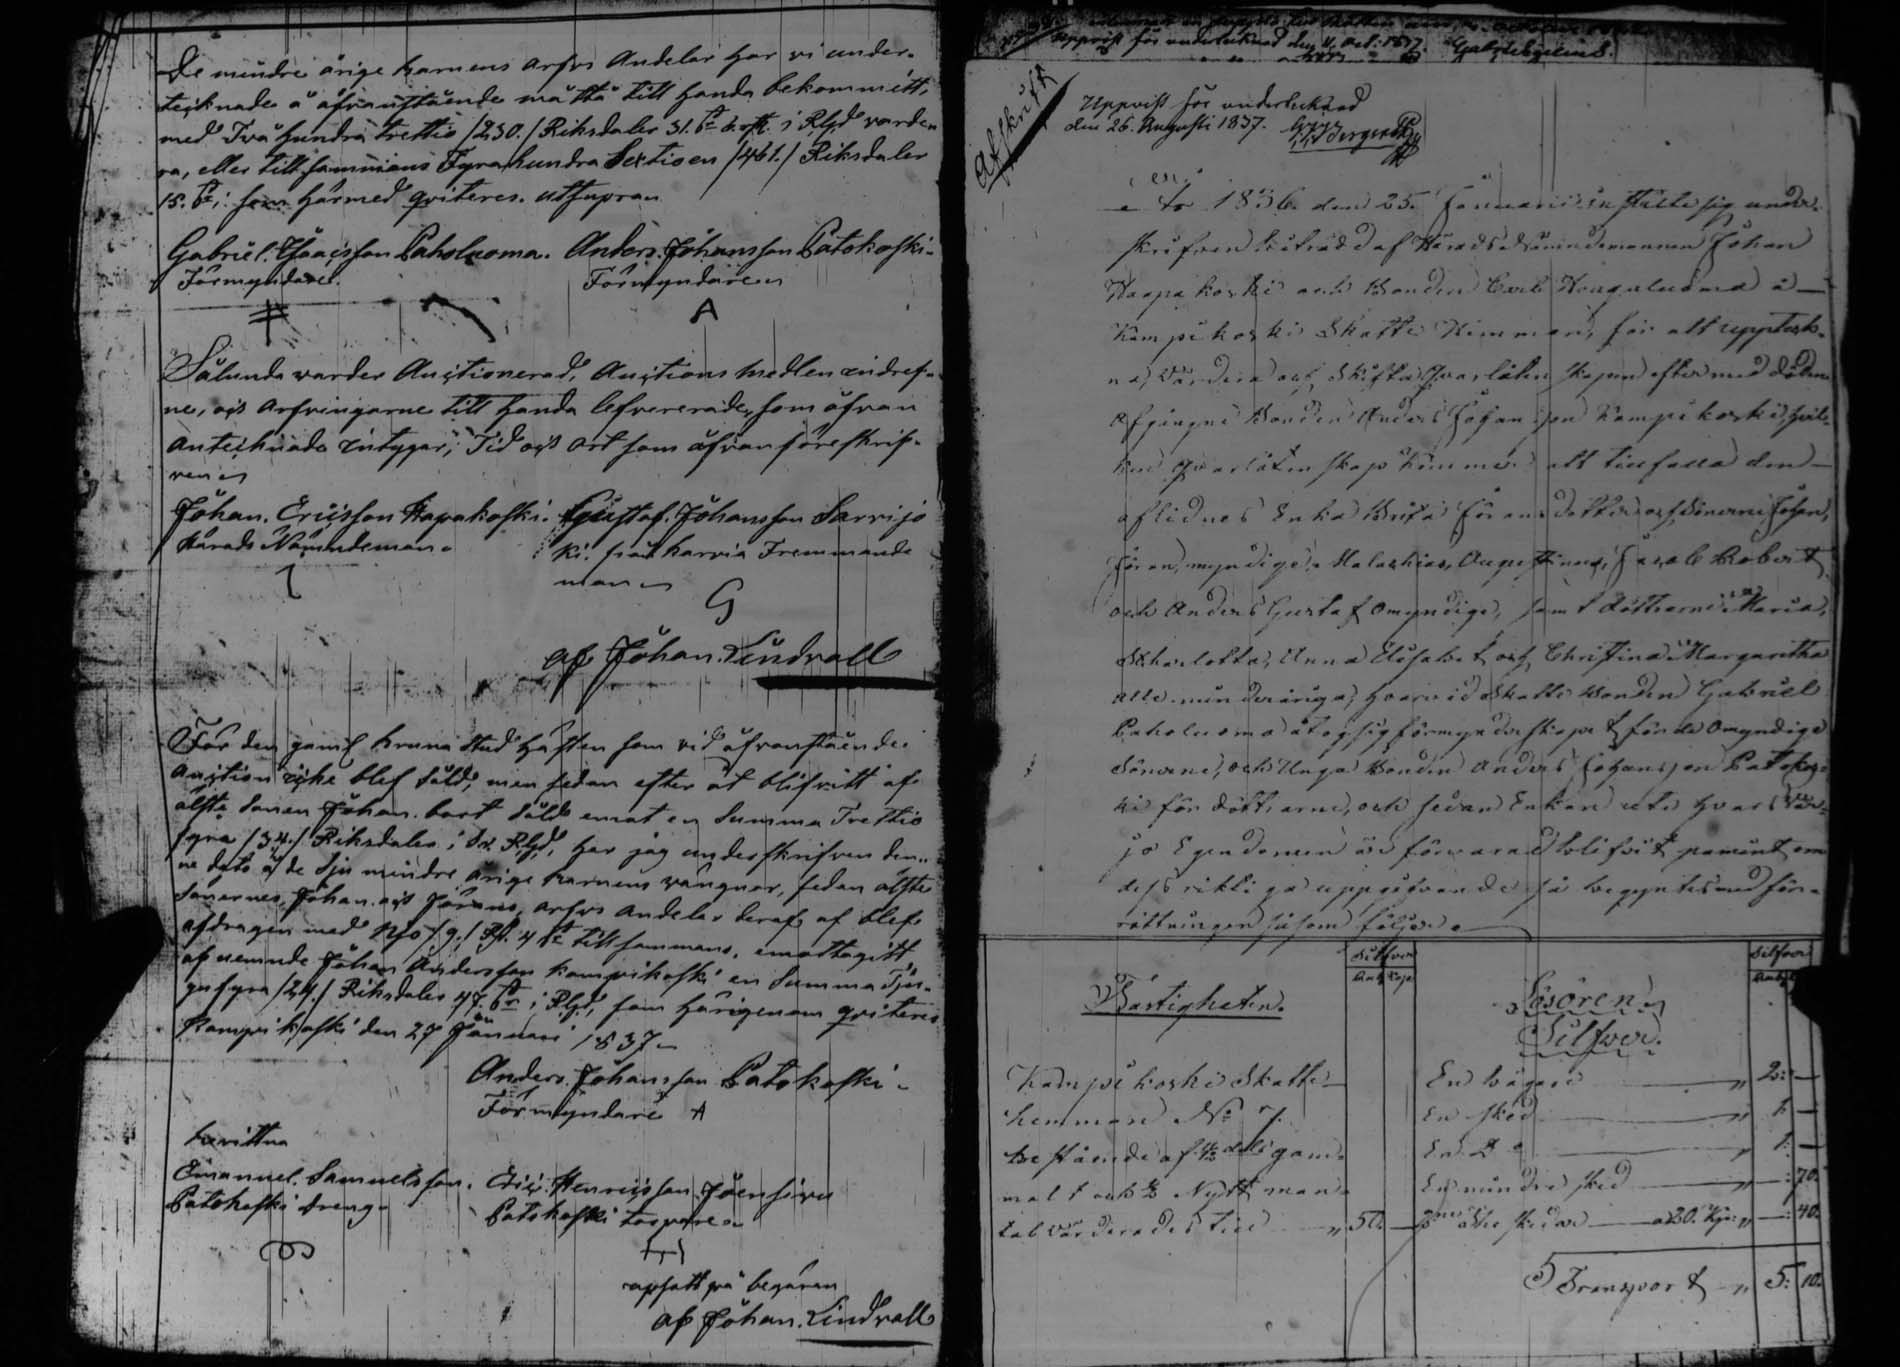 De mindre årige barnens arfvs Andelar har vi under-
tecknade å åfvanstående måtta till handa bekommitt,
med Två hundra trettio /230./ Riksdaler 31. i Rgd varde-
ra, eller till sammans Fyra hundra Sextio en /461./ Riksdaler
15. som härmed qviteres. utsupran
Gabriel. Isacsson Paholuoma. Anders. Johansson Patokoski-
Förmyndare. Förmyndare
A
Sålunda varder Auctionerad, Auctions medlen indref-
ne, och arfvingarne till handa lefvererade, som åfvan
antecknade intygar, Tid och ort som åfvan föreskrif-
ven
Johan. Ericsson Hapakoski. Gustaf. Johansson Sarvijo
Härads Nämndeman. ki. från Karvia Fremmande
man
G
af Johan. Lindvall
För den gaml bruna stud hästen som vid åfvanstående
Auction icke blef såld, men sedan efter åt blifvitt af
älste sonen Johan. bort såld emot en Summa Trettio
fyra /34./ Riksdaler i Sv. Rgd, har jag underskrifven den-
ne dato å de Sju mindre årige barnens vängnar, sedan älste
sönernes, Johan. och Jörans, arfvs andelar deraf af blef
afdragen med Nio /9./ Rd. 4 tillsammans, emottagitt
af nemnde Johan Andersson kampikoski en Summa Tju-
gufyra /24./ Riksdaler 47. i Rgd, som härigenom qviteres
Kampikoski den 27 Januari 1837
Anders. Johansson Patokoski-
Förmyndare A
bevittna
Emanuel. Samuelsson. Eric. Henricsson Joensivu
Patokoski dreng. Patokoski torpare
afsatt på begäran
af Johan. Lindvall
Uppvist för undertecknad den Oct. 1837.
Afskrift
Uppvist för undertecknad
den 26. Augusti 1837.
År 1836. den 25. Januarii instälte sig under-
skrifven biträdd af Härads Nämndemannen Johan
Haapakoski och Bonden Carl Kongaluoma å
Kampikoski Skatte Hemman, för att uppteck-
na, Värdera och Skifta Qvarlåtenskapen efter med döden
afgångne Bonden Anders Johansson Kampikoski, hvil-
ken qvarlåtenskap kommer att tillfalla den
aflidnes Enka Brita Jöransdotter och Sönerne Johan,
Jöran, myndige, Malachias, Augustinus, Jacob Robert
och Anders Gustaf omyndige, samt döttrarne Maria,
Scharlotta, Anna Elisabet och Christina Margaretha
alla minderåriga, hvarvid Skatte Bonden Gabriel
Paholuoma åtog sig förmynderskapet för de Omyndige
Sönerne, och Unga Bonden Anders Johansson Patokos-
ki för döttrarne, och sedan Enkan uti hvars vär-
jo Egendomen är förvarad blifvit pamint om
dess riktiga uppgifvande så begyntes med för-
rättningen såsom följer
Silfver Silfver
Fastigheten. Lösören
Silfver.
Kampikoski Skatte En bägare 2:
hemman No 7. En sked 1.
bestående af gam- En Do 1.
malt och Nytt man- En mindre sked 70.
tal värderades till 50. ske skedar a 20. Kop 40.
Transport 5. 10.